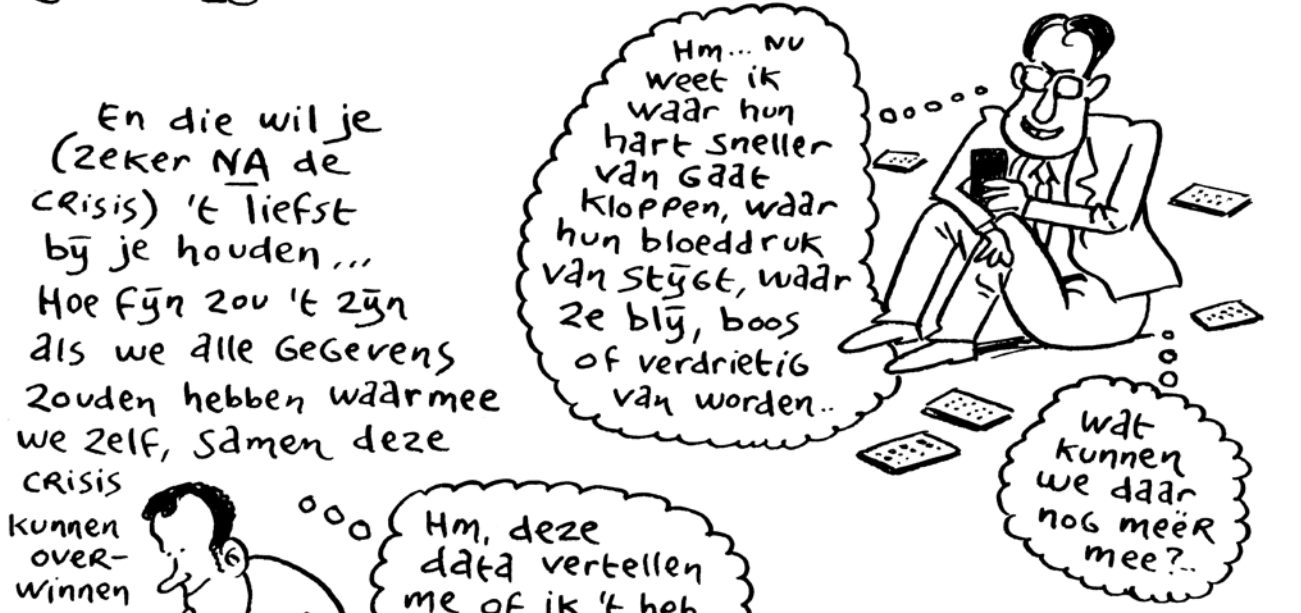 En die wil je
(zeker NA de
crisis) 't liefst
bij je houden...
Hoe fijn zou 't zijn
als we alle gegevens
zouden hebben waarmee
we zelf, samen deze
crisis
kunnen
over-
winnen
Hm... nu
weet ik
waar hun
hart sneller
van gaat
kloppen, waar
hun bloeddruk
van stijgt, waar
ze blij, boos
of verdrietig
van worden..
wat
kunnen
we daar
nog meër
mee?..
Hm, deze
data vertellen
me of ik 't heb